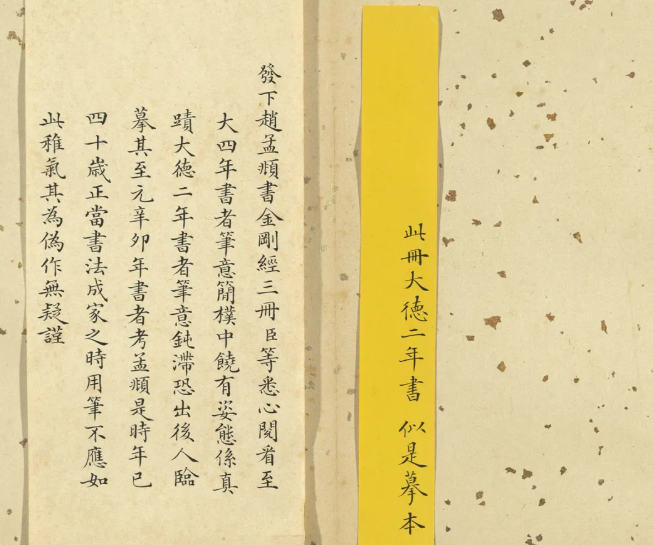 此冊大德二年書 似是摹本
發下趙孟頫書金剛經三冊臣等悉心閱看至
大四年書者筆意簡樸中饒有姿態係真
蹟大德二年書者筆意鈍滯恐出後人臨
摹其至元辛卯年書者考孟頫是時年已
四十歲正當書法成家之時用筆不應如
此稚氣其為偽作無疑謹